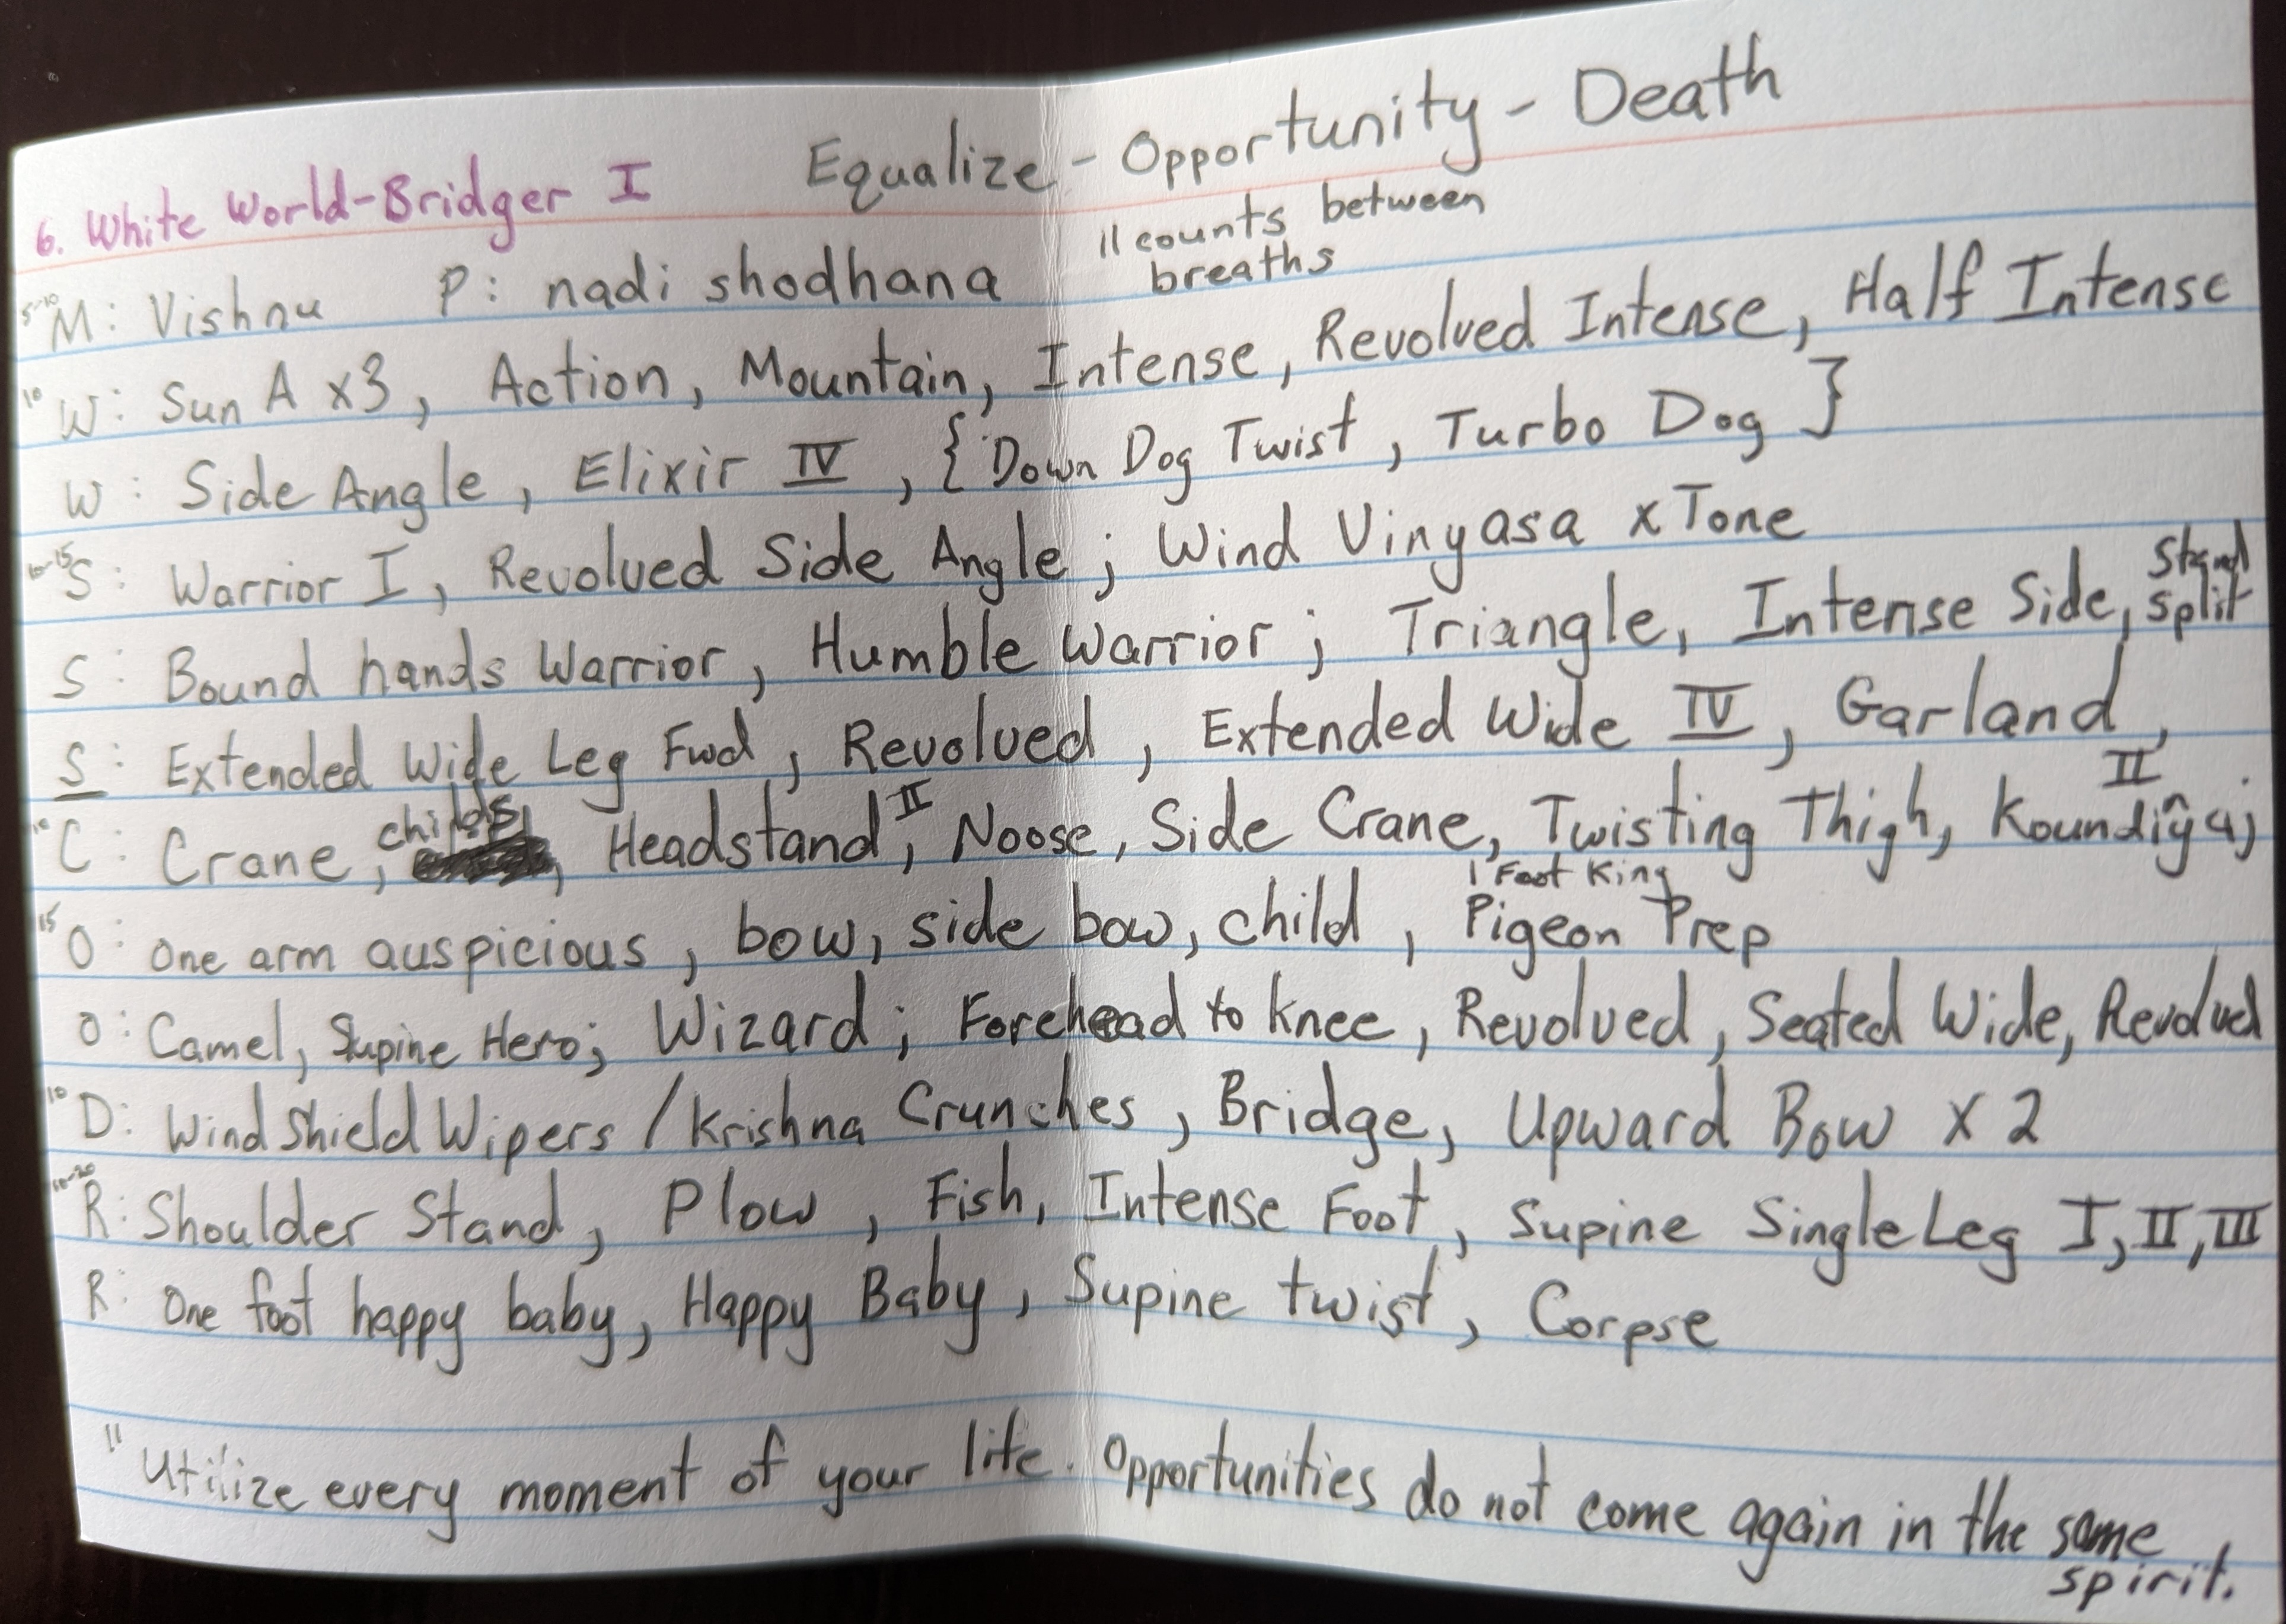 6. White World-Bridger I Equalize - Opportunity - Death
11 counts between
breaths
5-10 M: Vishnu P: nadi shodhana
10 W: Sun A x3, Action, Mountain, Intense, Revolved Intense, Half Intense
W: Side Angle, Elixir IV, {Down Dog Twist, Turbo Dog}
S: Warrior I, Revolved Side Angle; Wind Vinyasa x Tone
Stand
S: Bound hands Warrior, Humble Warrior; Triangle, Intense Side, split
S: Extended Wide Leg Fwd, Revolved, Extended Wide IV, Garland,
childs II II
10 C: Crane, Headstand, Noose, Side Crane, Twisting Thigh, Koundiñya;
1 Foot King
15 O: One arm auspicious, bow, side bow, child, Pigeon Prep
O: Camel, Supine Hero; Wizard; Forehead to knee, Revolved, Seated Wide, Revolved
10 D: WindShield Wipers / Krishna Crunches, Bridge, Upward Bow x 2
10-20 R: Shoulder Stand, Plow, Fish, Intense Foot, Supine Single Leg I, II, III
R: One foot happy baby, Happy Baby, Supine twist, Corpse
"Utilize every moment of your life. Opportunities do not come again in the same
spirit.